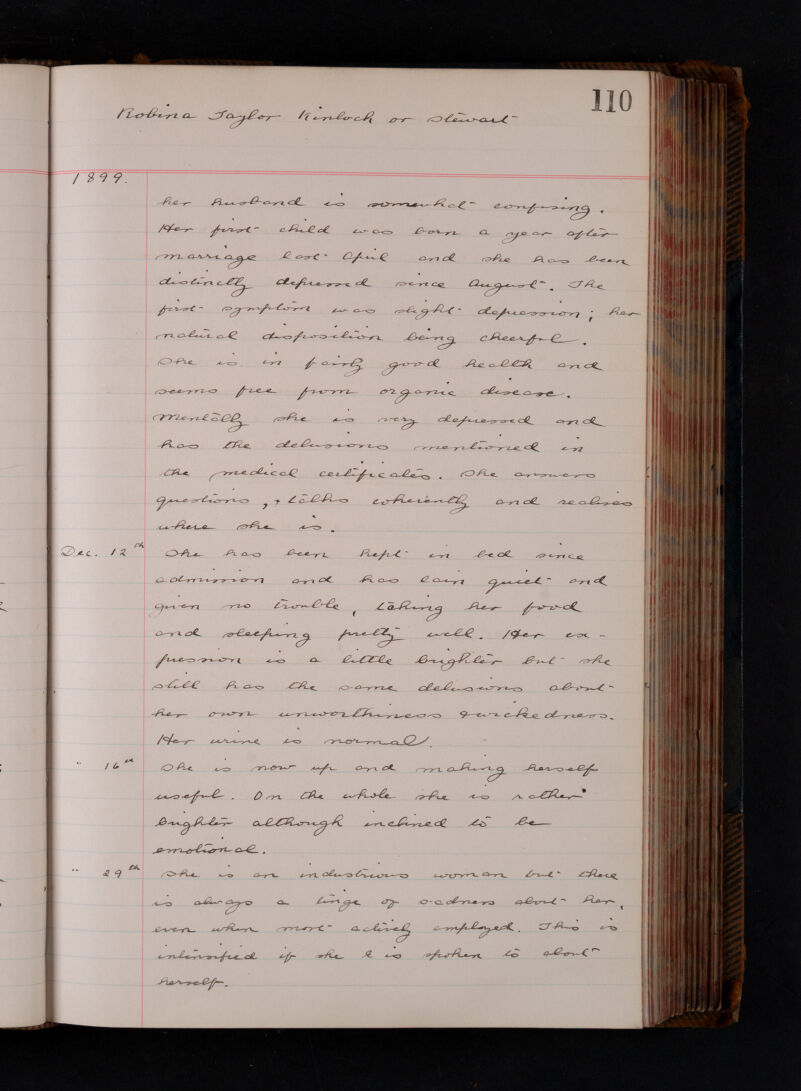 110
Robina Taylor Kinloch or Stewart
1899.
her husband is somewhat confusing.
Her first child was born a year after
marriage last April and she has been
distinctly depressed since August. The
first symptom was slight depression; her
natural disposition being cheerful.
She is in fairly good health and
seems free from organic disease.
Mentally she is very depressed and
has the delusions mentioned in
the medical certificates. She answers
questions, + talks coherently and realises
where she is.
Dec. 12th She has been kept in bed since
admission and has lain quiet and
given no trouble, taking her food
and sleeping pretty well. Her ex-
pression is a little brighter but she
still has the same delusions about
her own unworthiness & wickedness.
Her urine is normal.
" 16th She is now up and making herself
useful. On the whole she is rather
brighter although inclined to be
emotional.
" 29th She is an industrious woman but there
is always a tinge of sadness about her,
even when most actively employed. This is
intensified if she is spoken to about
herself.